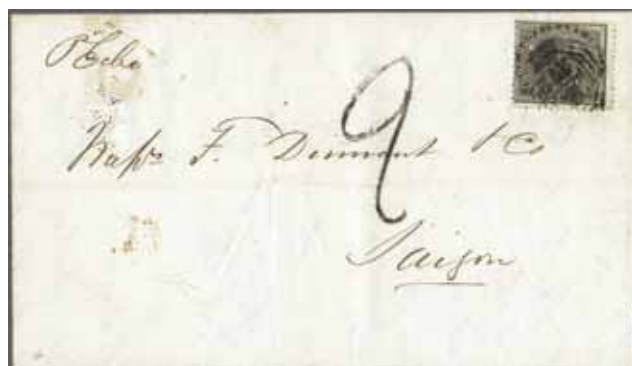 P Echo
9
Messrs F. Dumont & Co
Saigon